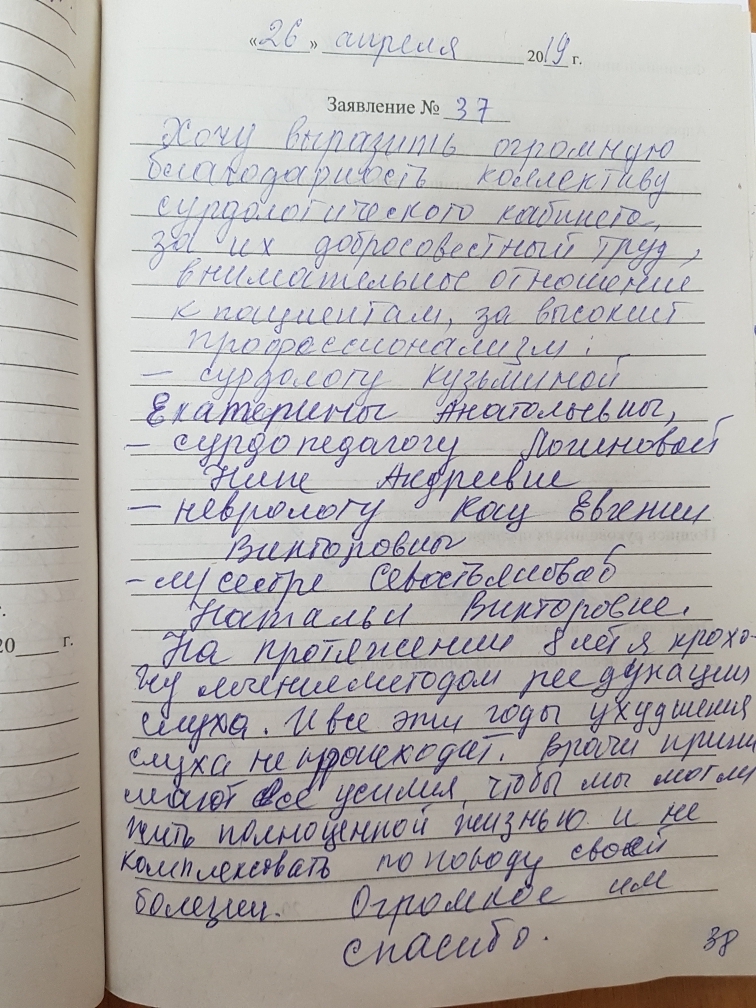 « 26 » апреля 2019 г.
Заявление № 37
Хочу выразить огромную
благодарность коллективу
сурдологического кабинета,
за их добросовестный труд,
внимательные отношение
к пациентам, за высокий
профессионализм:
– сурдологу Кузьминой
Екатерины Анатольевны,
– сурдопедагогу Логиновой
Нине Андреевне
– неврологу Кац Евгении
Викторовны
– м/сестре Севостьяновой
Натальи Викторовне.
На протяжении 8 лет я прохо-
жу лечение методом реедукации
слуха. И все эти годы ухудшения
слуха не происходит. Врачи прини
мают все усилия, чтобы мы могли
жить полноценной жизнью и не
комплексовать по поводу своей
болезни. Огромное им
спасибо.
38
20 г.
г.